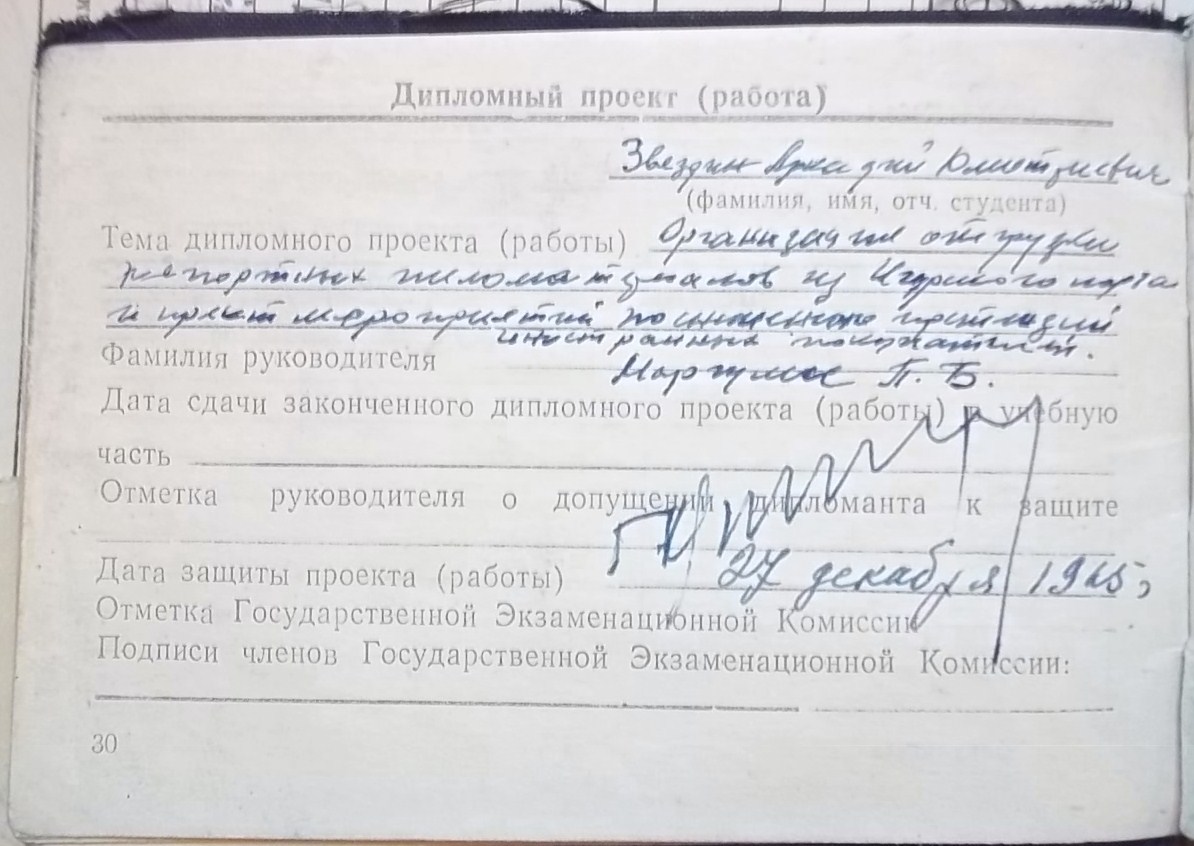 Дипломный проект (работа)
Звездин Аркадий Дмитриевич
(фамилия, имя, отч. студента)
Тема дипломного проекта (работы) Организация отгрузки
экспортных пиломатериалов из Игарского порта
и проект мероприятий по снижению претензий
иностранных покупателей.
Фамилия руководителя Маргулис П. Б.
Дата сдачи законченного дипломного проекта (работы) в учебную
часть
Отметка руководителя о допущении дипломанта к защите
Дата защиты проекта (работы) 27 декабря 1965
Отметка Государственной Экзаменационной Комиссии
Подписи членов Государственной Экзаменационной Комиссии:
30